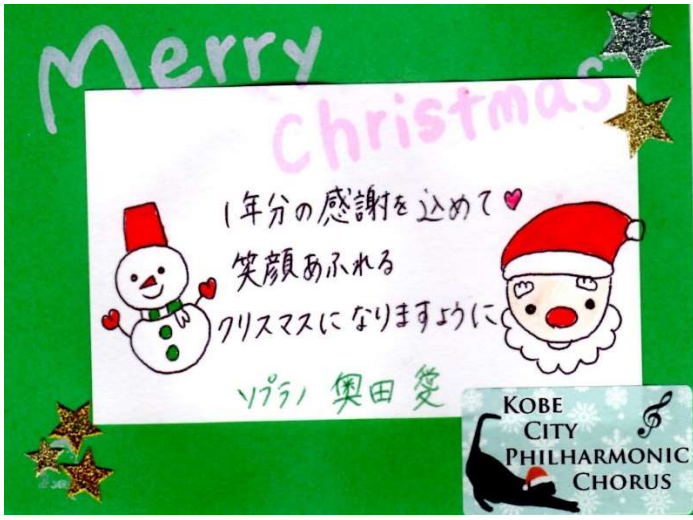 Merry
Christmas
1年分の感謝を込めて
笑顔あふれる
クリスマスになりますように
ソプラノ 奥田 愛
KOBE
CITY
PHILHARMONIC
CHORUS